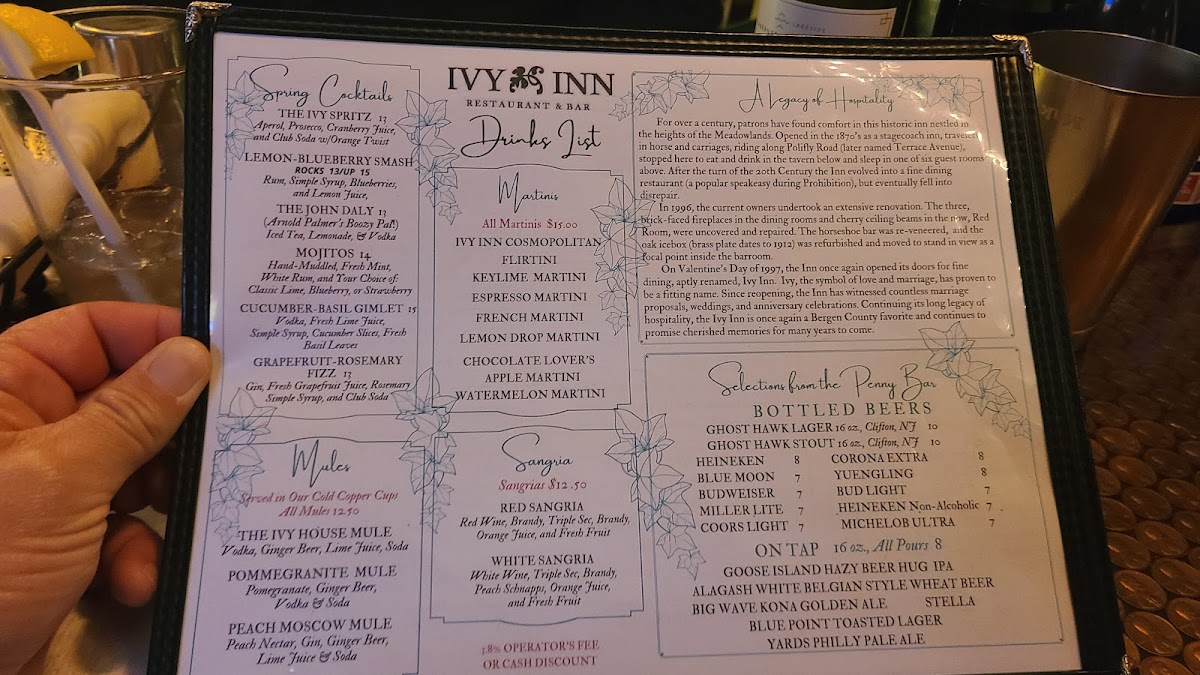 IVY INN
RESTAURANT & BAR
Drinks List
Spring Cocktails
THE IVY SPRITZ 13
Aperol, Prosecco, Cranberry Juice,
and Club Soda w/Orange Twist
LEMON-BLUEBERRY SMASH
ROCKS 13/UP 15
Rum, Simple Syrup, Blueberries,
and Lemon Juice,
THE JOHN DALY 13
(Arnold Palmer's Boozy Pal!)
Iced Tea, Lemonade, & Vodka
MOJITOS 14
Hand-Muddled, Fresh Mint,
White Rum, and Your Choice of:
Classic Lime, Blueberry, or Strawberry
CUCUMBER-BASIL GIMLET 15
Vodka, Fresh Lime Juice,
Simple Syrup, Cucumber Slices, Fresh
Basil Leaves
GRAPEFRUIT-ROSEMARY
FIZZ 13
Gin, Fresh Grapefruit Juice, Rosemary
Simple Syrup, and Club Soda
Mules
Served in Our Cold Copper Cups
All Mules 12.50
THE IVY HOUSE MULE
Vodka, Ginger Beer, Lime Juice, Soda
POMMEGRANITE MULE
Pomegranate, Ginger Beer,
Vodka & Soda
PEACH MOSCOW MULE
Peach Nectar, Gin, Ginger Beer,
Lime Juice & Soda
Martinis
All Martinis $15.00
IVY INN COSMOPOLITAN
FLIRTINI
KEYLIME MARTINI
ESPRESSO MARTINI
FRENCH MARTINI
LEMON DROP MARTINI
CHOCOLATE LOVER'S
APPLE MARTINI
WATERMELON MARTINI
Sangria
Sangrias $12.50
RED SANGRIA
Red Wine, Brandy, Triple Sec, Brandy,
Orange Juice, and Fresh Fruit
WHITE SANGRIA
White Wine, Triple Sec, Brandy,
Peach Schnapps, Orange Juice,
and Fresh Fruit
3.8% OPERATOR'S FEE
OR CASH DISCOUNT
A Legacy of Hospitality
For over a century, patrons have found comfort in this historic inn nestled in
the heights of the Meadowlands. Opened in the 1870's as a stagecoach inn, travelers
in horse and carriages, riding along Polifly Road (later named Terrace Avenue),
stopped here to eat and drink in the tavern below and sleep in one of six guest rooms
above. After the turn of the 20th Century the Inn evolved into a fine dining
restaurant (a popular speakeasy during Prohibition), but eventually fell into
disrepair.
In 1996, the current owners undertook an extensive renovation. The three,
brick-faced fireplaces in the dining rooms and cherry ceiling beams in the now, Red
Room, were uncovered and repaired. The horseshoe bar was re-veneered, and the
oak icebox (brass plate dates to 1912) was refurbished and moved to stand in view as a
focal point inside the barroom.
On Valentine's Day of 1997, the Inn once again opened its doors for fine
dining, aptly renamed, Ivy Inn. Ivy, the symbol of love and marriage, has proven to
be a fitting name. Since reopening, the Inn has witnessed countless marriage
proposals, weddings, and anniversary celebrations. Continuing its long legacy of
hospitality, the Ivy Inn is once again a Bergen County favorite and continues to
promise cherished memories for many years to come.
Selections from the Penny Bar
BOTTLED BEERS
GHOST HAWK LAGER 16 oz., Clifton, NJ 10
GHOST HAWK STOUT 16 oz., Clifton, NJ 10
HEINEKEN 8 CORONA EXTRA 8
BLUE MOON 7 YUENGLING 8
BUDWEISER 7 BUD LIGHT 7
MILLER LITE 7 HEINEKEN Non-Alcoholic 7
COORS LIGHT 7 MICHELOB ULTRA 7
ON TAP 16 oz., All Pours 8
GOOSE ISLAND HAZY BEER HUG IPA
ALAGASH WHITE BELGIAN STYLE WHEAT BEER
BIG WAVE KONA GOLDEN ALE STELLA
BLUE POINT TOASTED LAGER
YARDS PHILLY PALE ALE